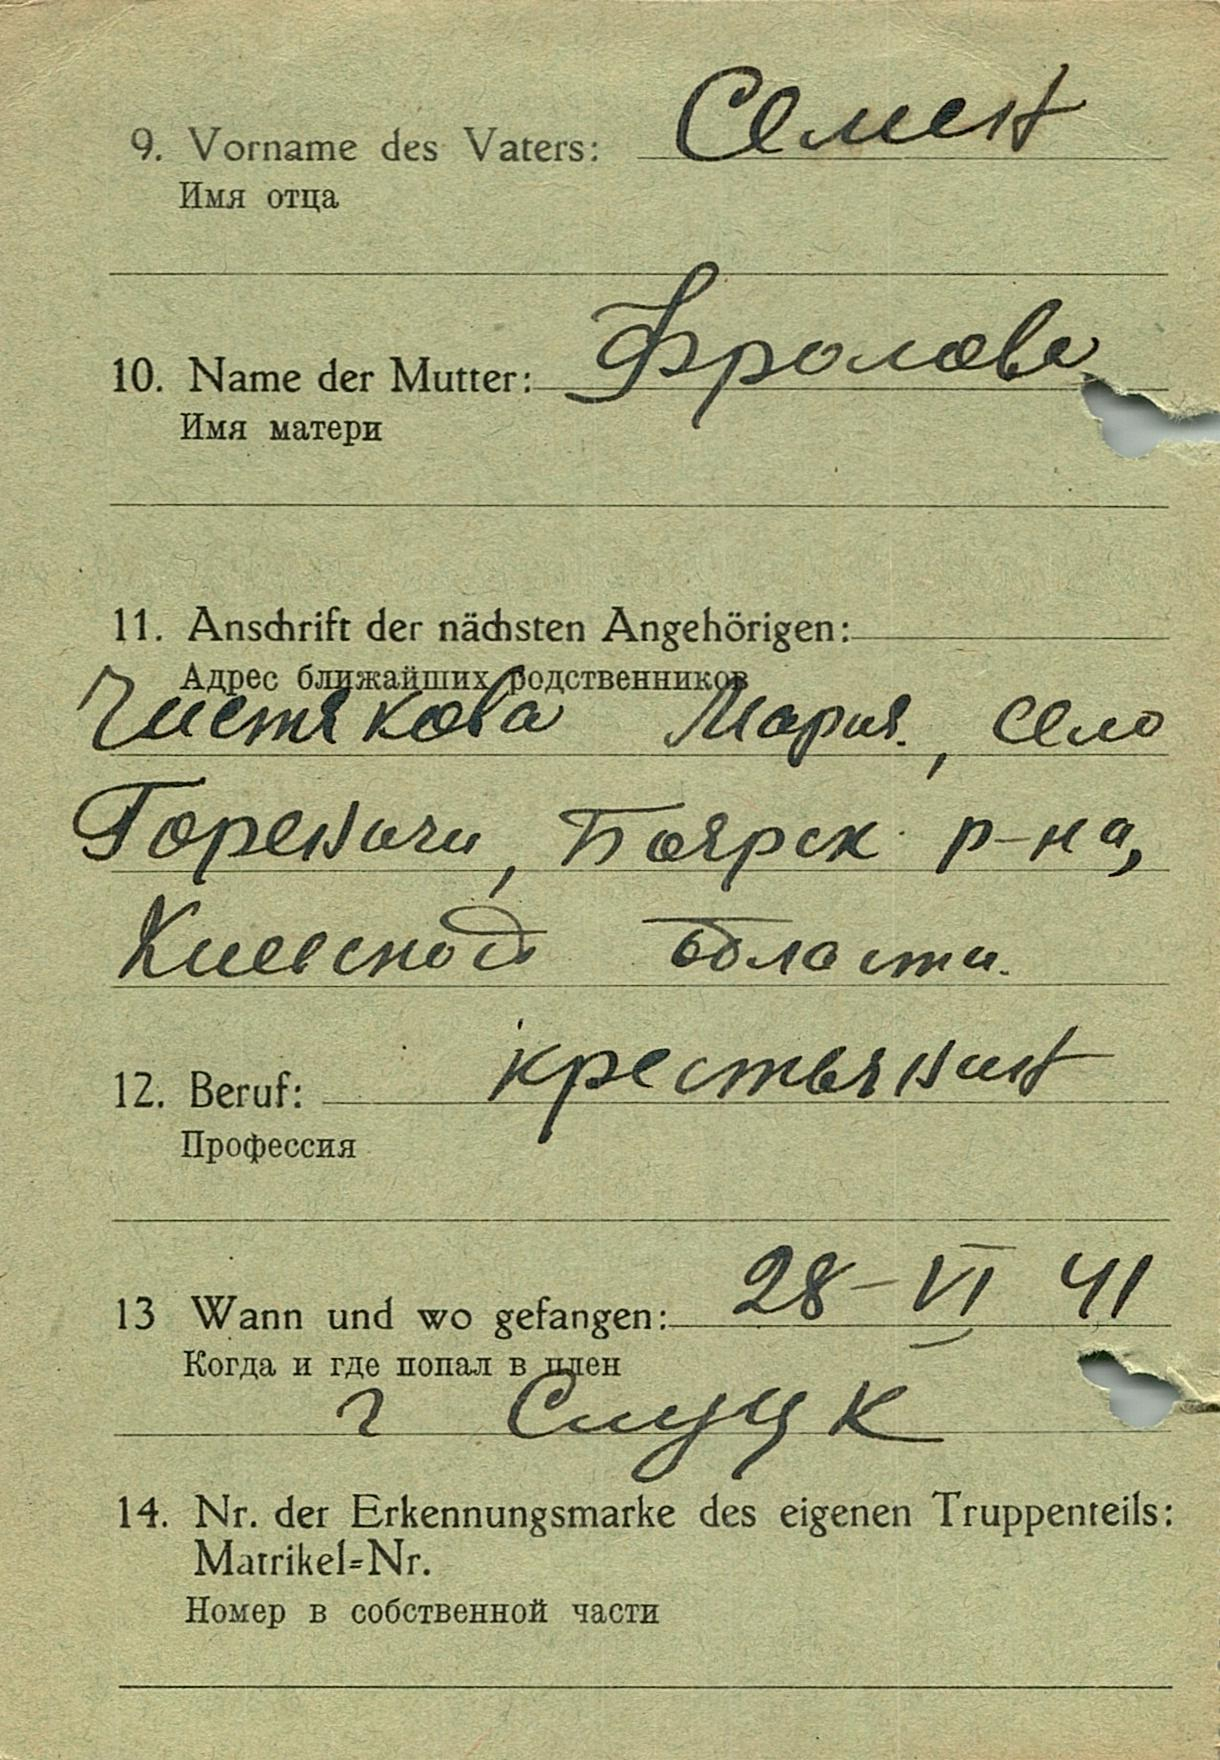 9. Vorname des Vaters: Семен
Имя отца
10. Name der Mutter: Фролова
Имя матери
11. Anschrift der nächsten Angehörigen:
Адрес ближайших родственников
Чистякова Мария, село
Гореничи, Боярск р-на,
Киевской области.
12. Beruf: крестьянин
Профессия
13 Wann und wo gefangen: 28-VI 41
Когда и где попал в плен
г Слуцк
14. Nr. der Erkennungsmarke des eigenen Truppenteils:
Matrikel-Nr.
Номер в собственной части